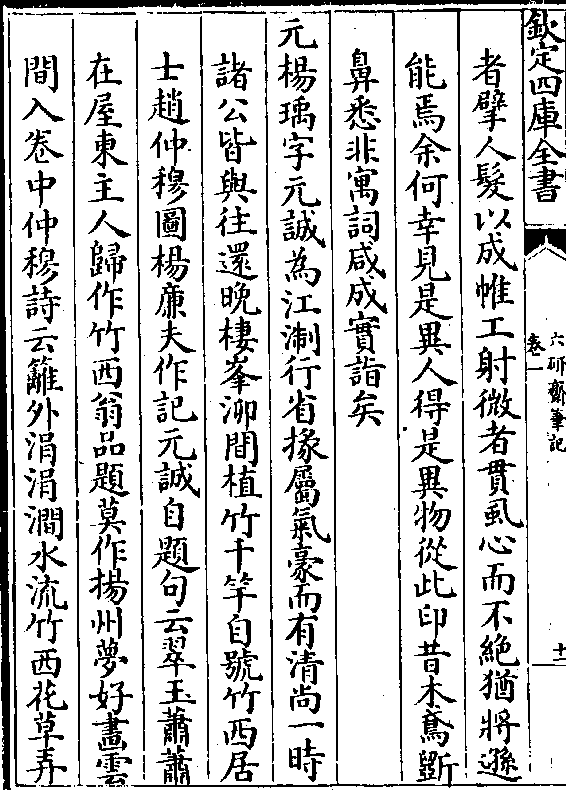 欽定四庫全書
六研齋筆記
卷一
十二
者擘人髮以成帷工射微者貫虱心而不絶猶將遜
能焉余何幸見是異人得是異物從此印昔木鳶斵
鼻悉非寓詞咸成實詣矣
元楊瑀字元誠為江浙行省掾屬氣豪而有清尚一時
諸公皆與往還晚棲峯泖間植竹千竿自號竹西居
士趙仲穆圖楊廉夫作記元誠自題句云翠玉蕭蕭
在屋東主人歸作竹西翁品題莫作揚州夢好畫雲
間入卷中仲穆詩云籬外涓涓澗水流竹西花草弄